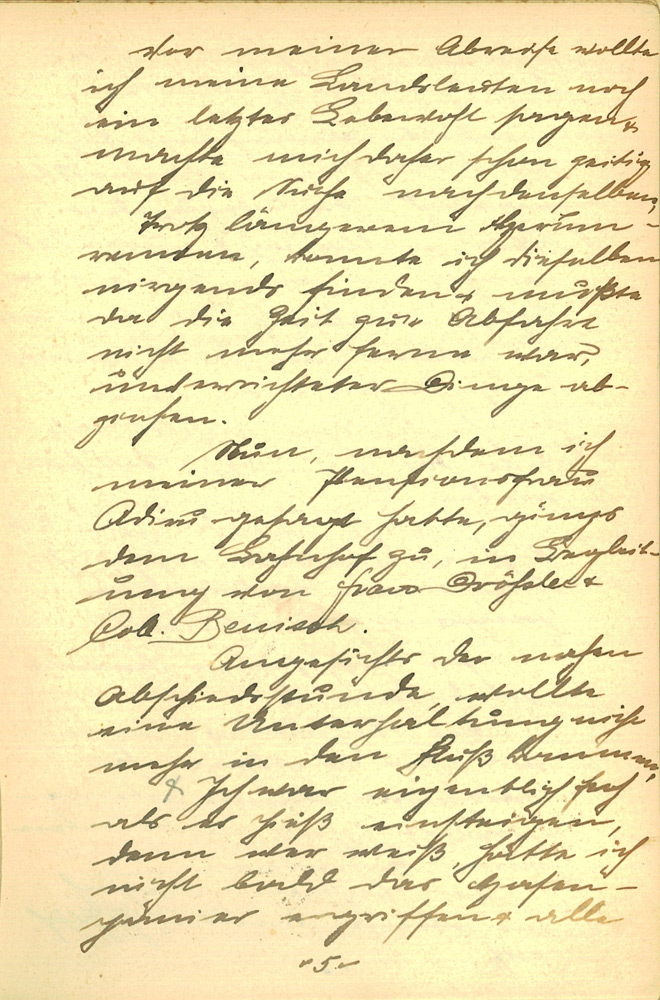 Vor meiner Abreise wollte
ich meine Landsleuten noch
ein letztes Lebewohl sagen &
machte mich daher schon zeitig
auf die Suche nach denselben,
Trotz längerem Herum-
rennen, konnte ich dieselben
nirgends finden & mußte
da die Zeit zur Abfahrt
nicht mehr ferne war,
unverrichteter Dinge ab-
ziehen.
Nun, nachdem ich
meiner Pensionsfrau
Adieu gesagt hatte, gings
dem Bahnhof zu, in Begleit-
ung von Frau &
Coll. Benisch.
Angesichts der nahen
Abschiedsstunde, wollte
eine Unterhaltung nicht
mehr in den Fluß kommen,
& Ich war eigentlich froh
als es hieß einsteigen,
denn wer weiß, hätte ich
nicht bald das Hasen-
panier ergriffen & alle
-5-